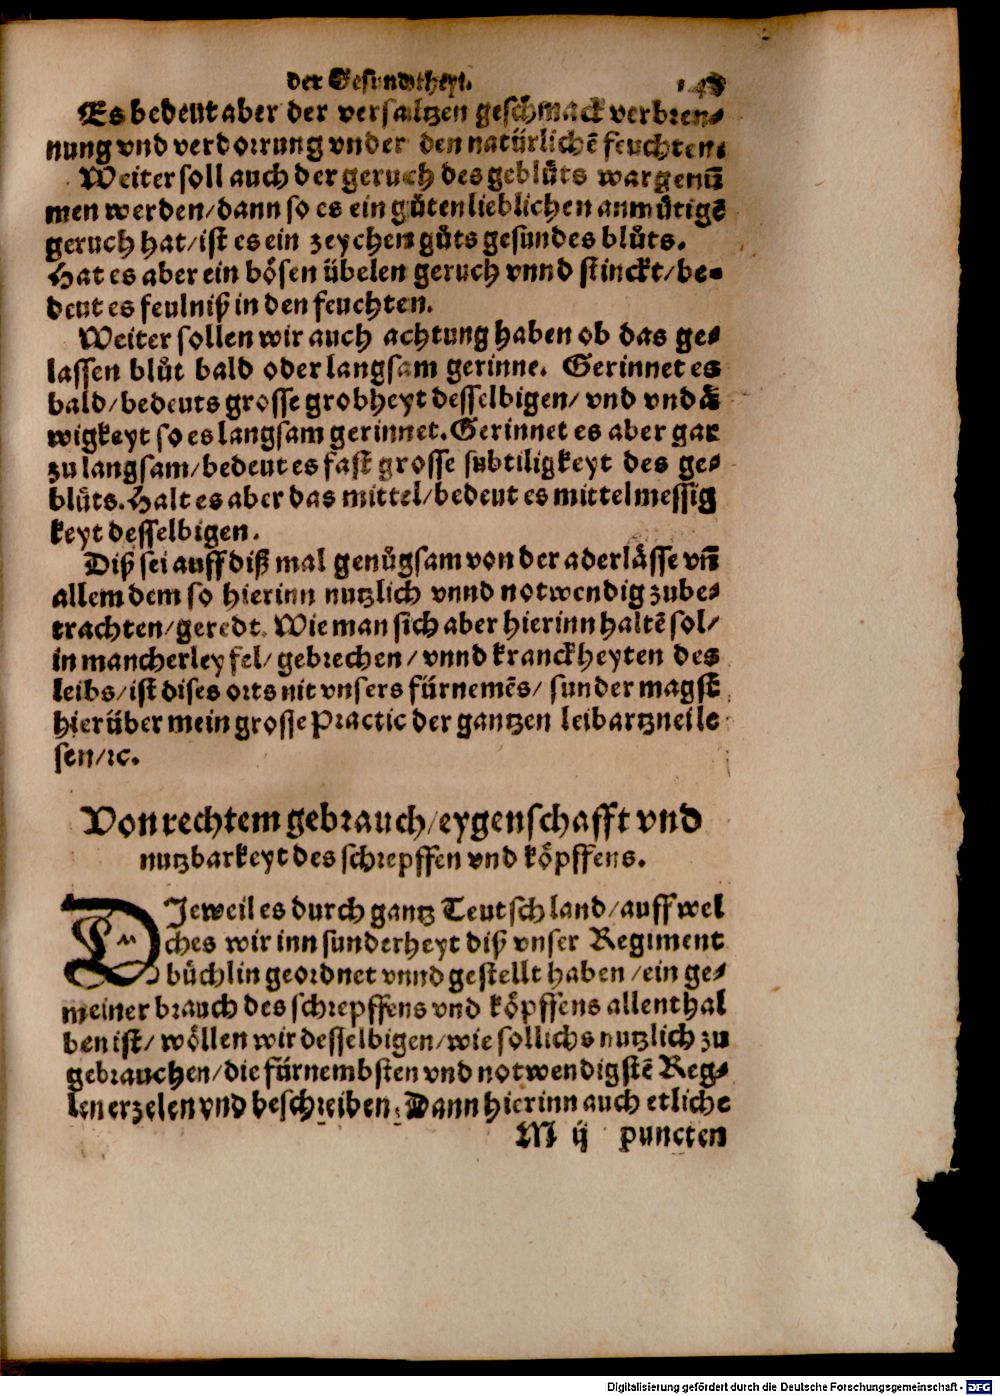 der Gesundtheyt.
Es bedeut aber der versaltzen geschmack verbren⸗
nung vnd verdorrung vnder den natürlichẽ feuchten.
Weiter soll auch der geruch des geblůts wargenū
men werden/dann so es ein gůten lieblichen anmůtigẽ
geruch hat/ist es ein zeychen gůts gesundes blůts.
Hat es aber ein bösen übelen geruch vnnd stinckt/be⸗
deut es feulniß in den feuchten.
Weiter sollen wir auch achtung haben ob das ge⸗
lassen blůt bald oder langsam gerinne. Gerinnet es
bald/bedeuts grosse grobheyt desselbigen/ vnd vndã
wigkeyt so es langsam gerinnet. Gerinnet es aber gar
zu langsam/bedeut es fast grosse subtiligkeyt des ge⸗
blůts. Halt es aber das mittel/bedeut es mittelmessig
keyt desselbigen.
Diß sei auff diß mal genůgsam von der aderlässe vñ
allem dem so hierinn nutzlich vnnd notwendig zube⸗
trachten/geredt. Wie man sich aber hierinn haltẽ sol/
in mancherley fel/ gebrechen/ vnnd kranckheyten des
leibs/ist dises orts nit vnsers fürnemẽs/ sunder magstu
hierüber mein grosse Practic der gantzen leibartznei le
sen/ꝛc.
Von rechtem gebrauch/eygenschafft vnd
nutzbarkeyt des schrepffen vnd köpffens.
DJeweil es durch gantz Teutschland/auff wel
ches wir inn sunderheyt diß vnser Regiment
büchlin geordnet vnnd gestellt haben/ein ge⸗
meiner brauch des schrepffens vnd köpffens allenthal
ben ist/ wöllen wir desselbigen/wie sollichs nutzlich zu
gebrauchen/die fürnembsten vnd notwendigstẽ Reg⸗
len erzelen vnd beschreiben. Dann hierinn auch etliche
M ij puncten
Digitalisierung gefördert durch die Deutsche Forschungsgemeinschaft - DFG